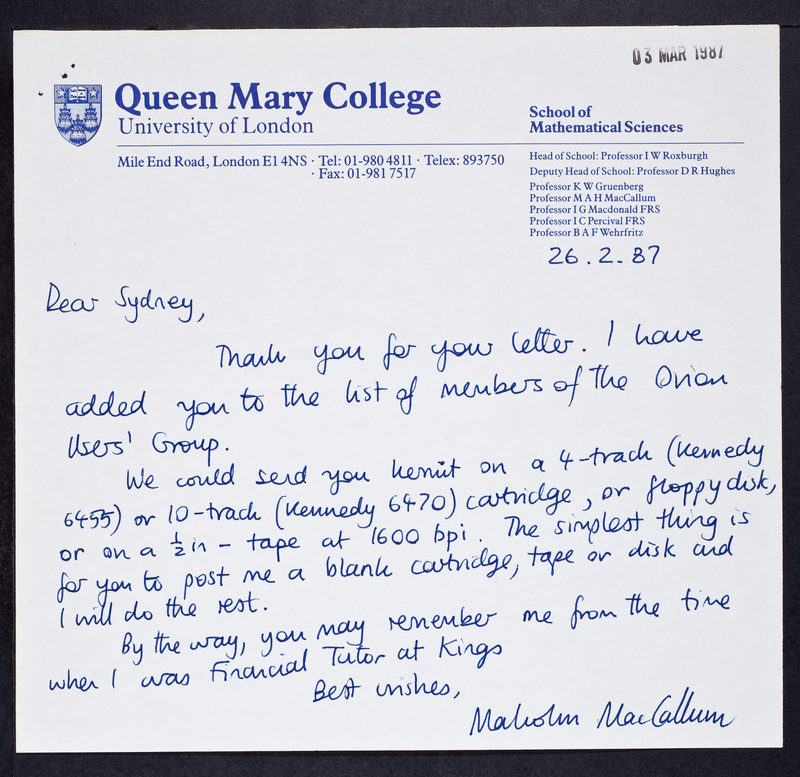 03 MAR 1987
Queen Mary College
University of London
School of
Mathematical Sciences
Mile End Road, London E1 4NS · Tel: 01-980 4811 · Telex: 893750
· Fax: 01-981 7517
Head of School: Professor I W Roxburgh
Deputy Head of School: Professor D R Hughes
Professor K W Gruenberg
Professor M A H MacCallum
Professor I G Macdonald FRS
Professor I C Percival FRS
Professor B A F Wehrfritz
26.2.87
Dear Sydney,
Thank you for your letter. I have
added you to the list of members of the Orion
Users' Group.
We could send you kermit on a 4-track (Kennedy
6455) or 10-track (Kennedy 6470) cartridge, or floppy disk,
or on a ½ in - tape at 1600 bpi. The simplest thing is
for you to post me a blank cartridge, tape or disk and
I will do the rest.
By the way, you may remember me from the time
when I was Financial Tutor at Kings
Best wishes,
Malcolm MacCallum